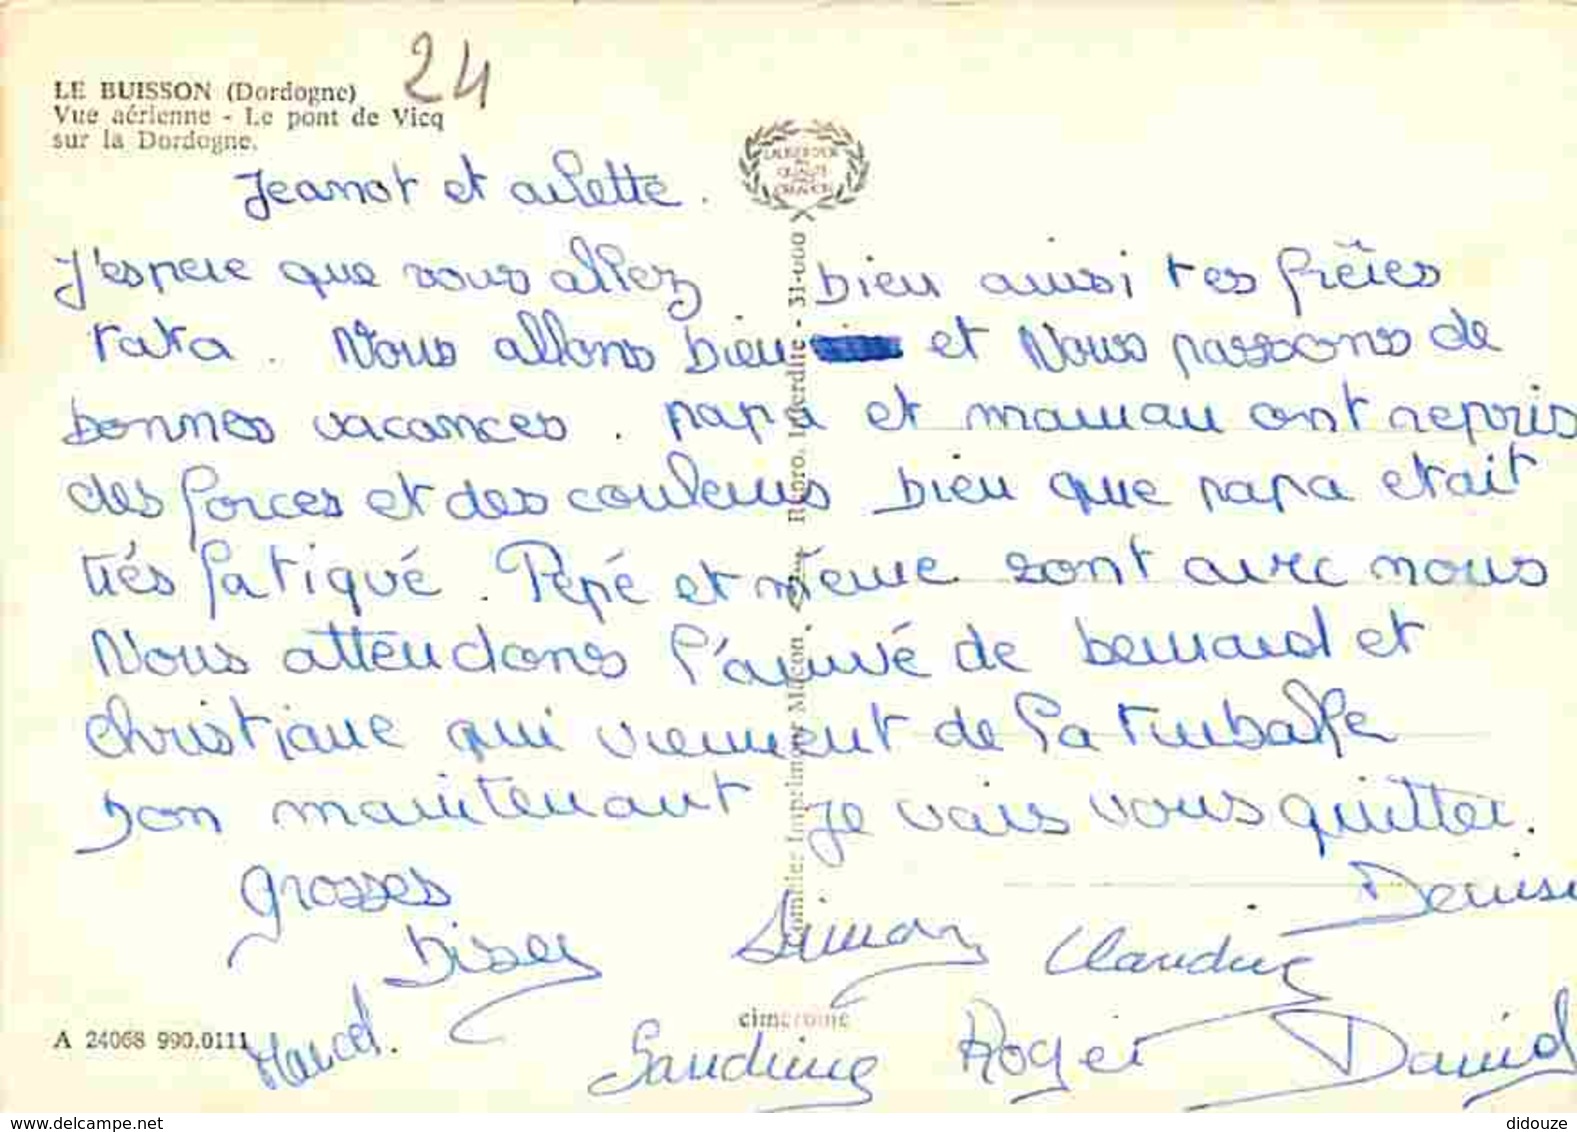 24
LE BUISSON (Dordogne)
Vue aérienne - Le pont de Vicq
sur la Dordogne.
Jeanot et arlette.
J'espere que vous allez bien ainsi tes frères
tata. Nous allons bien et Nous passons de
bonnes vacances. papa et maman ont repris
des forces et des couleurs bien que papa etait
très fatiqué. Pépé et mémé sont avec nous
Nous attendons l'arrivé de bernard et
christiane qui viennent de la turballe
bon maintenant je vais vous quitter.
grosses
Bises
Simon
Claudine
Denise
Marcel.
Sandrine
Roger
David
A 24068 990.0111
cim
Combier Imprimeur Mâcon. Repro. Interdite - 31-000
didouze